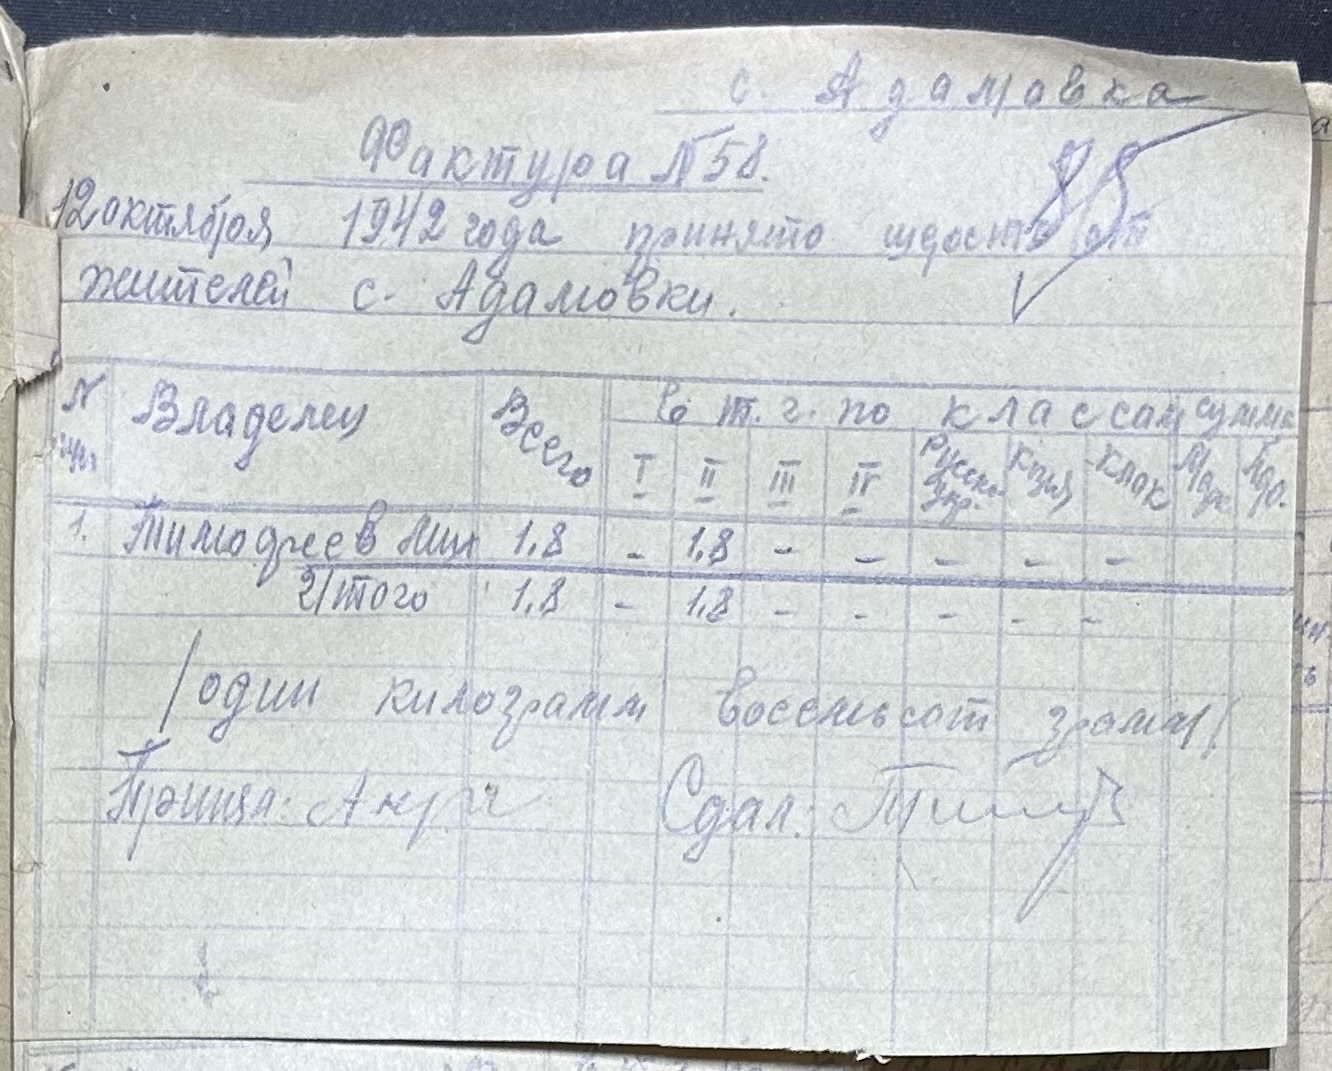 с. Адамовка
Фактура N 58.
85
12 октября 1942 года принято шерсть от
жителей с. Адамовки.
N Владелец Всего в т. г. по классам сумма
I II III IV Русск. укр. клок Марк Крб.
1. Тимофеев Мих 1.8 - 1.8 - - - - -
Итого 1.8 - 1.8 - - - - -
/один килограмм восемьсот грамм/
Принял: Сдал: